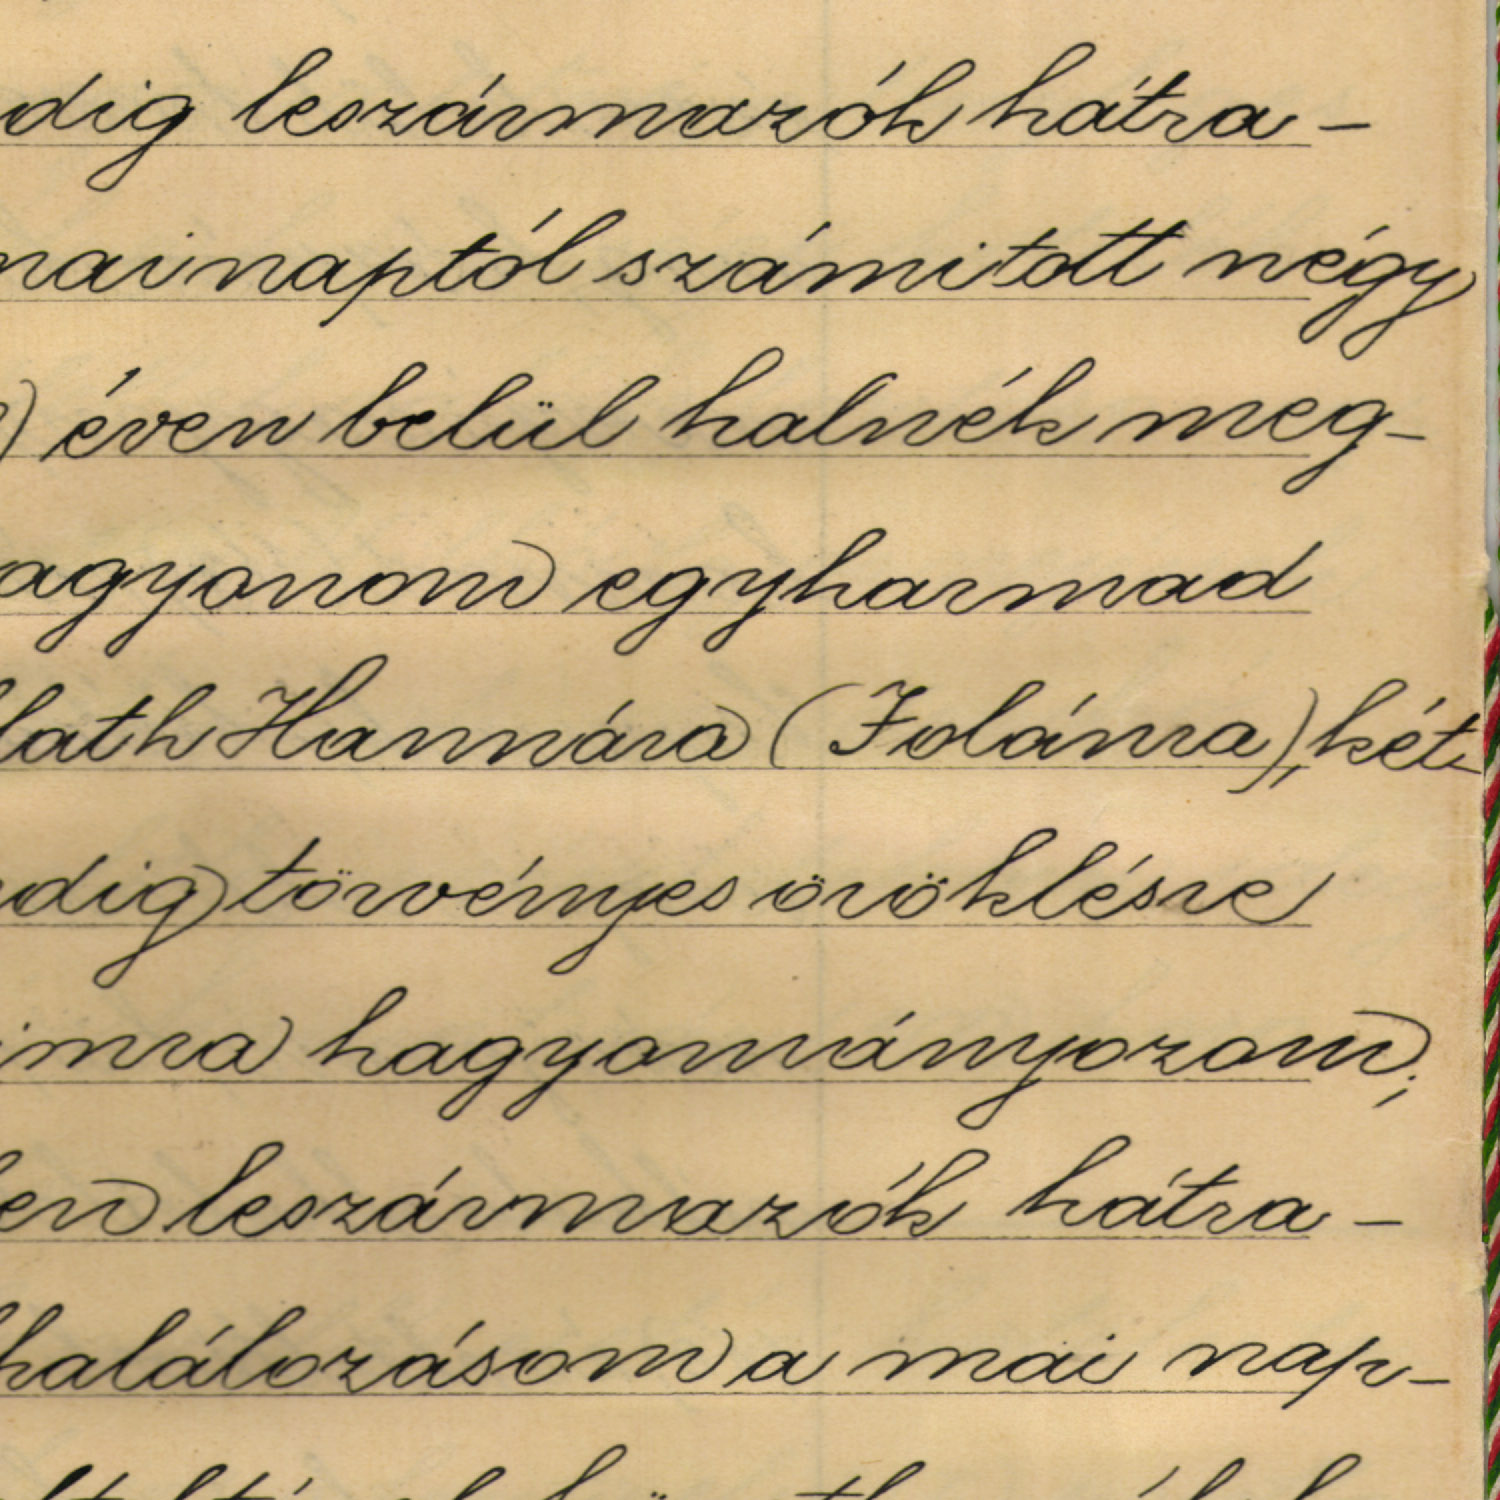 dig leszármazók hátra-
mai naptól számitott négy
) éven belül halnék meg-
agyonom egyharmad
lath Hannára (Jolánra), két-
dig törvényes öröklésre
imra hagyományozom;
en leszármazók hátra-
halálozásom a mai nap-